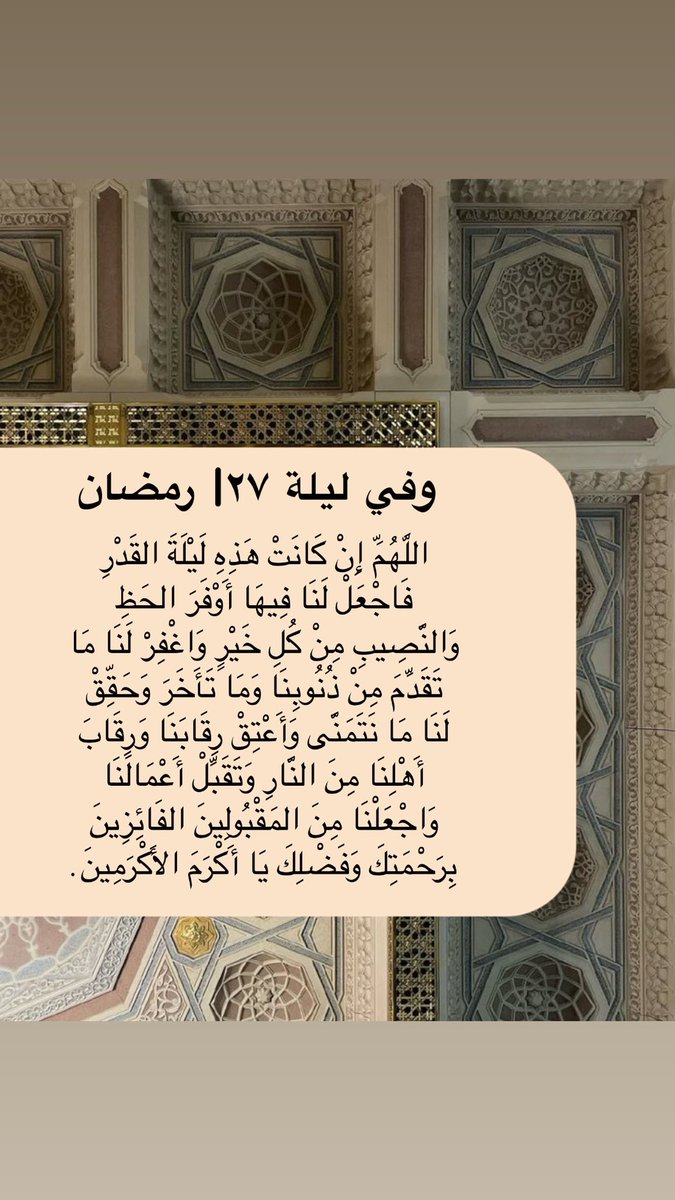 وفي ليلة ٢٧| رمضان
اللَّهُمِّ إِنْ كَانَتْ هَذِهِ لَيْلَةَ القَدْرِ
فَاجْعَلْ لَنَا فِيهَا أَوْفَرَ الحَظِ
وَالنَّصِيبِ مِنْ كُلِ خَيْرٍ وَاغْفِرْ لَنَا مَا
تَقَدِّمَ مِنْ ذُنُوبِنَا وَمَا تَأَخَرَ وَحَقِّقْ
لَنَا مَا نَتَمَنَّى وَأَعْتِقْ رِقَابَنَا وَرِقَابَ
أَهْلِنَا مِنَ النَّارِ وَتَقَبِّلْ أَعْمَالَنَا
وَاجْعَلْنَا مِنَ المَقْبُولِينَ الفَائِزِينَ
بِرَحْمَتِكَ وَفَضْلِكَ يَا أَكْرَمَ الأَكْرَمِينَ.